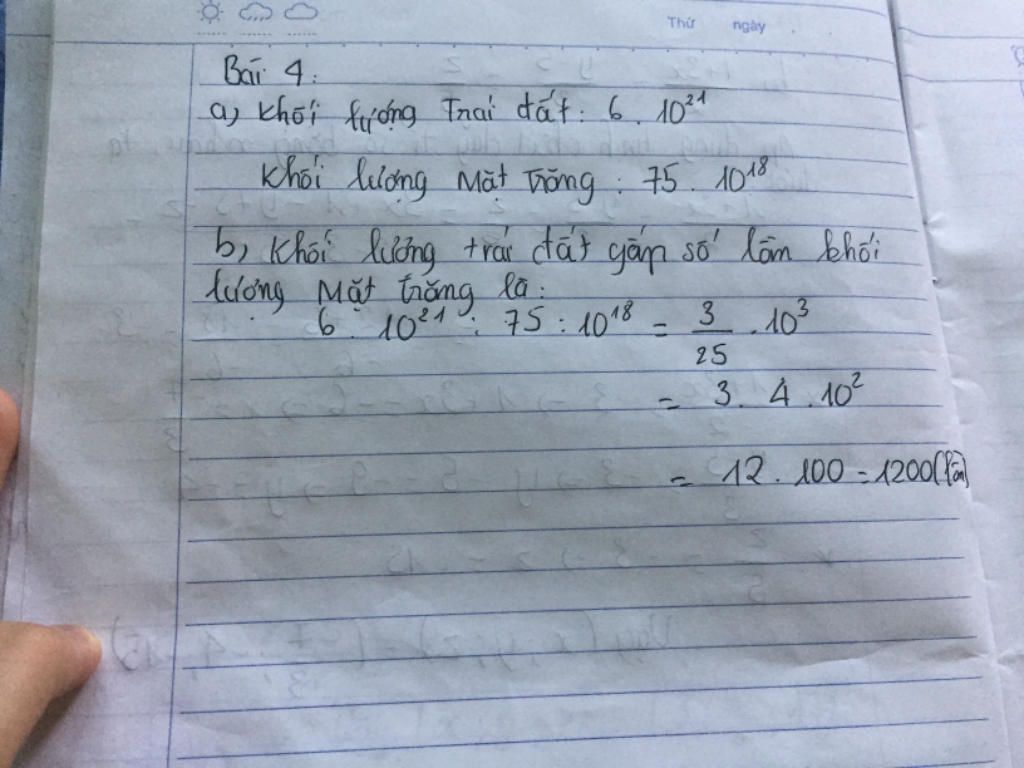 Thứ ngày
Bài 4:
a) Khối lượng Trái đất: 6. 10²¹
Khối lượng Mặt Trăng: 75. 10¹⁸
b) Khối lượng trái đất gấp số lần khối
lượng Mặt trăng là:
6. 10²¹ : 75 : 10¹⁸ = 3/25 . 10³
= 3. 4. 10²
= 12. 100 = 1200(lần)